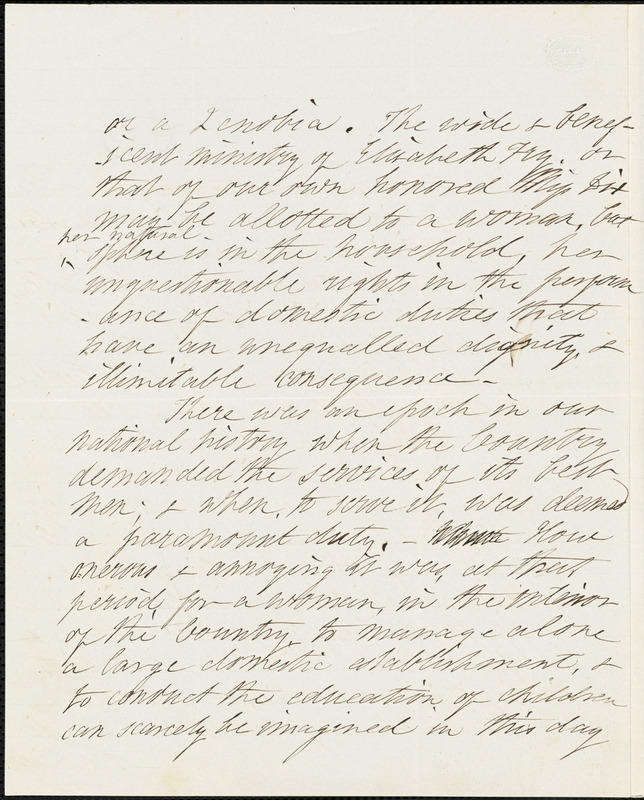 or a Zenobia. The wide & benef-
-icent ministry of Elisabeth Fry. or
that of our own honored Miss Dix
may be allotted to a woman, but
her natural
sphere is in the household, her
unquestionable rights in the perform
-ance of domestic duties that
have an unequalled dignity, &
illimitable consequence -
There was an epoch in our
national history when the Country
demanded the services of its best
men; & when, to serve it, was deemed
a paramount duty. - How
onerous & annoying it was, at that
period, for a woman, in the interior
of the Country, to manage alone
a large domestic establishment, &
to conduct the education of children
can scarcely be imagined in this day